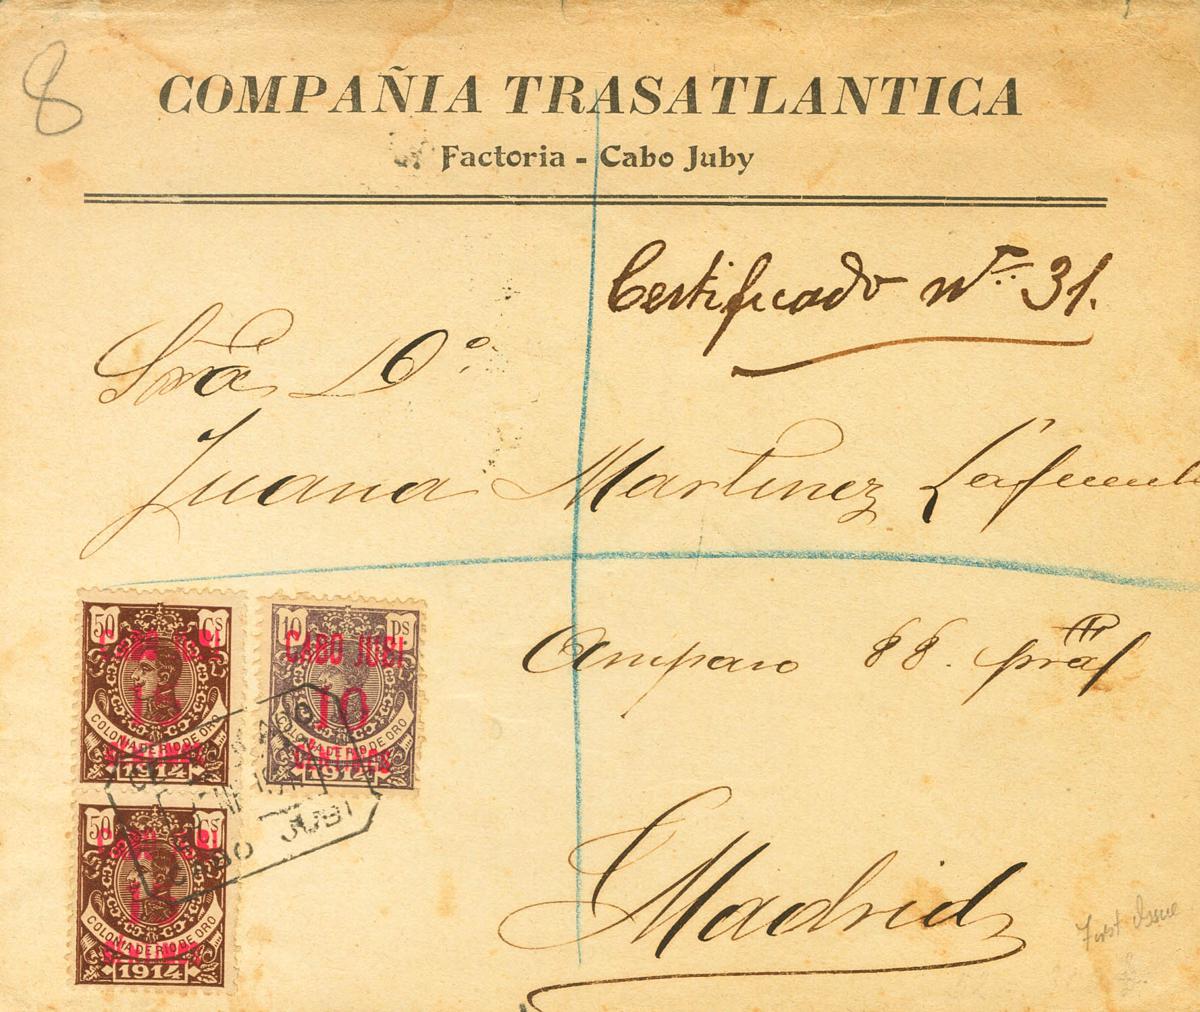 8
COMPAÑIA TRASATLANTICA
Factoria - Cabo Juby
Certificado nº 31.
Sra Dª
Juana Martinez Lafuente
Amparo 88. pral
Madrid
First Issue
50 Cs
CABO JUBI
COLONIA DE RIO DE ORO
CENTIMOS
1914
10 Ps
CABO JUBI
10
COLONIA DE RIO DE ORO
CENTIMOS
1914
50 Cs
CABO JUBI
COLONIA DE RIO DE ORO
CENTIMOS
1914
CABO JUBI